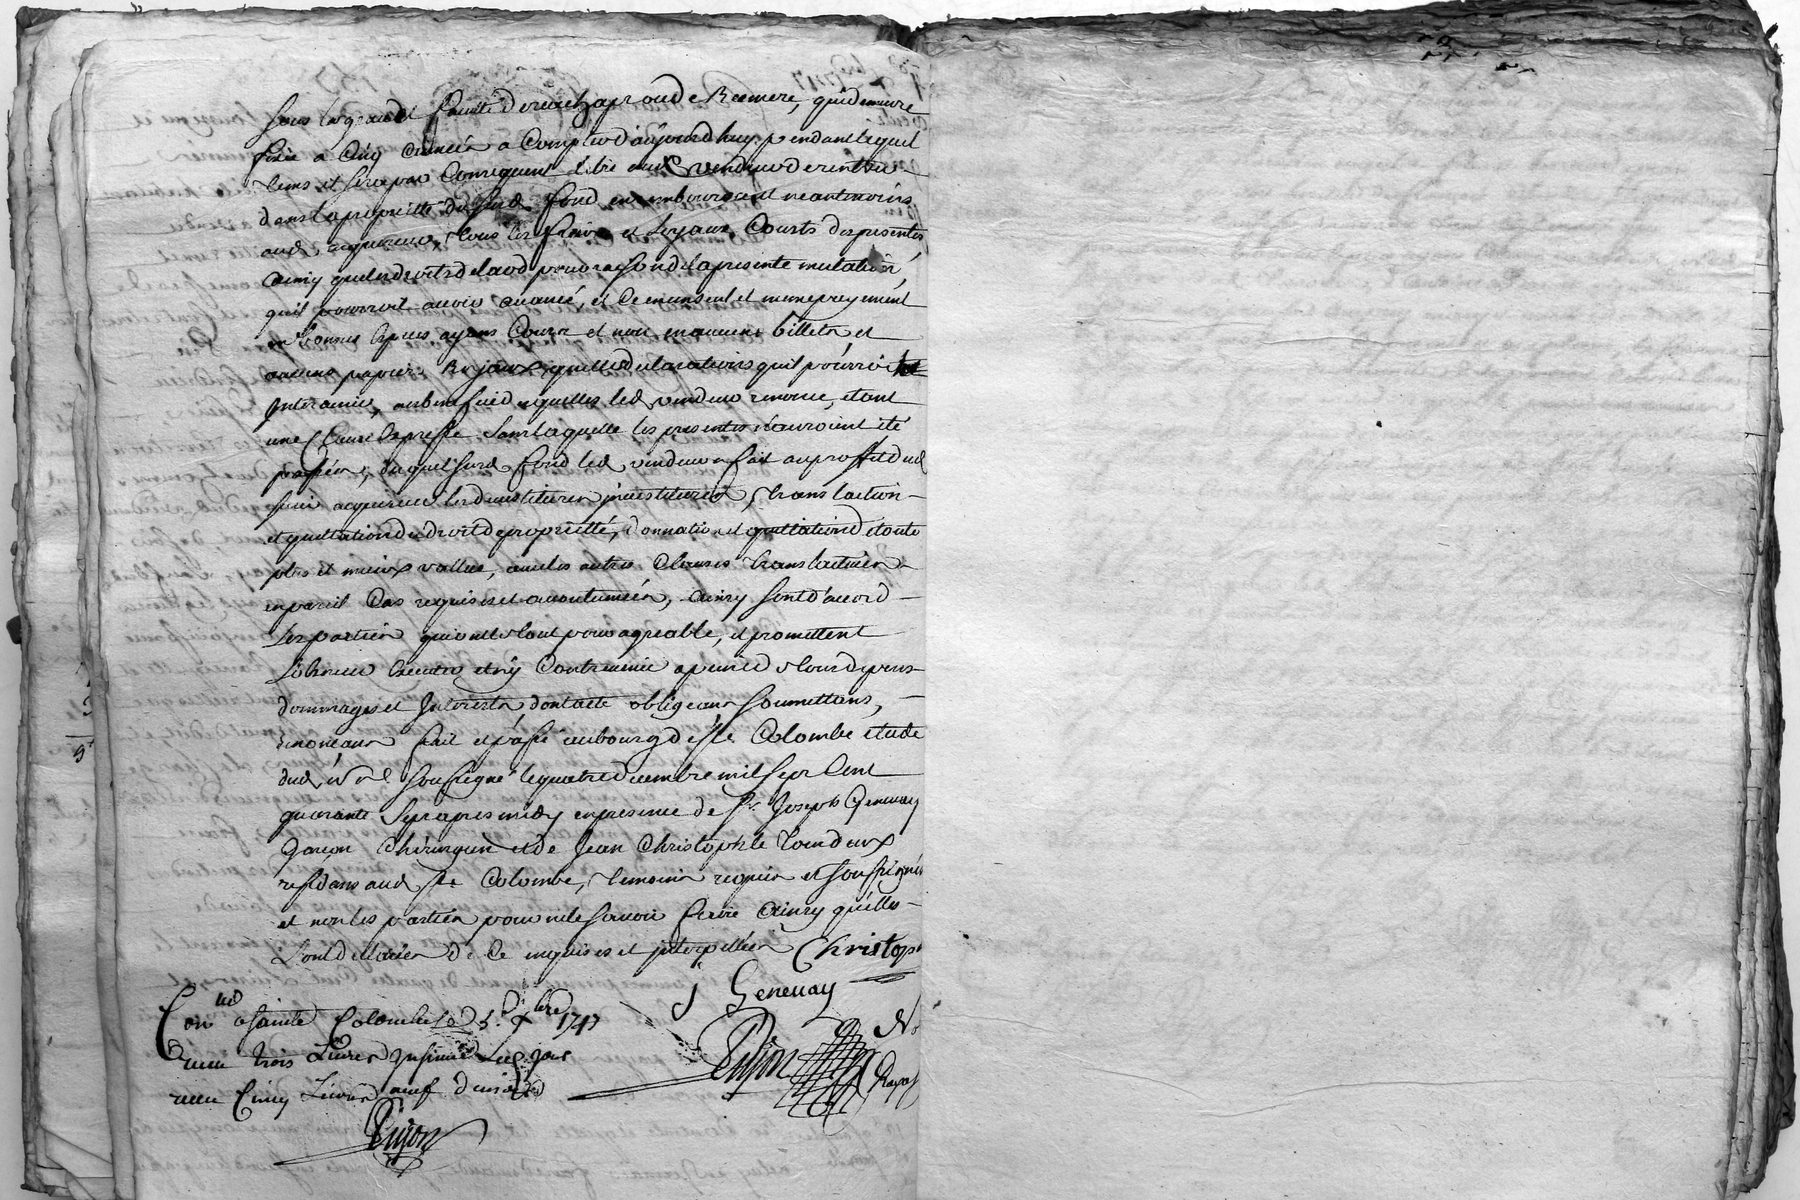 sous la grace et faculté de rachapt ou de Remere, qui demeure
fixé a Cinq années a Compter d'aujourd'huy pendant lequel
tems il sera par Consequent libre aud. vendeur de rentrer
dans la proprietté dud. fond, en remboursant neantmoins
aud. acquereur, tous les frais et Loyaux Couts des presentes,
ainsy que les droits de laod pour raison de la presente mutation,
qu'il pourroit avoir avancé, et Ce en un seul et meme payement
en bonnes Especes ayans Cours et non en aucuns billets et
aucuns papiers Royaux, quelles declarations qu'il pourroit
Intervenir, au benefice desquelles led. vendeur renonce, etant
une Clause Expresse Sans laquelle les presentes n'auroient été
passées, duquel susd. fond led. vendeur a fait au proffit dud.
sieur acquereur les devestitures investitures, translation
et quittation de droit de proprietté, donnation et quittation de toute
plus et mieux vallue, avec les autres Clauses translatives
en pareil Cas requises et accoutumées, ainsy sont d'accord
Les parties qui ont le tout pour agreable, et promettent
L'observer Executer et n'y Contrevenir a peine de tous depens
dommages et Interests dont acte obligeans soumettans,
renonceans fait et passé au bourg de Ste Colombe etude
dud. nore soussigné le quatre decembre mil sept Cent
quarante Sept apres midy en presence de Sr. Joseph Genevay
garçon Chirurgien et de Jean Christophle
residans aud. Ste Colombe, temoins requis et soussignés
et non les parties pour ne le sçavoir faire ainsy qu'elles
ont declarées de Ce enquises et interpellées Christop
J Genevay
Conlé a sainte Colombe Le 5e Xbre 1747
receu trois Livres Insinué Led. jour
receu Cinq Livres neuf deniers
Pujon
Pujon
No
Royal